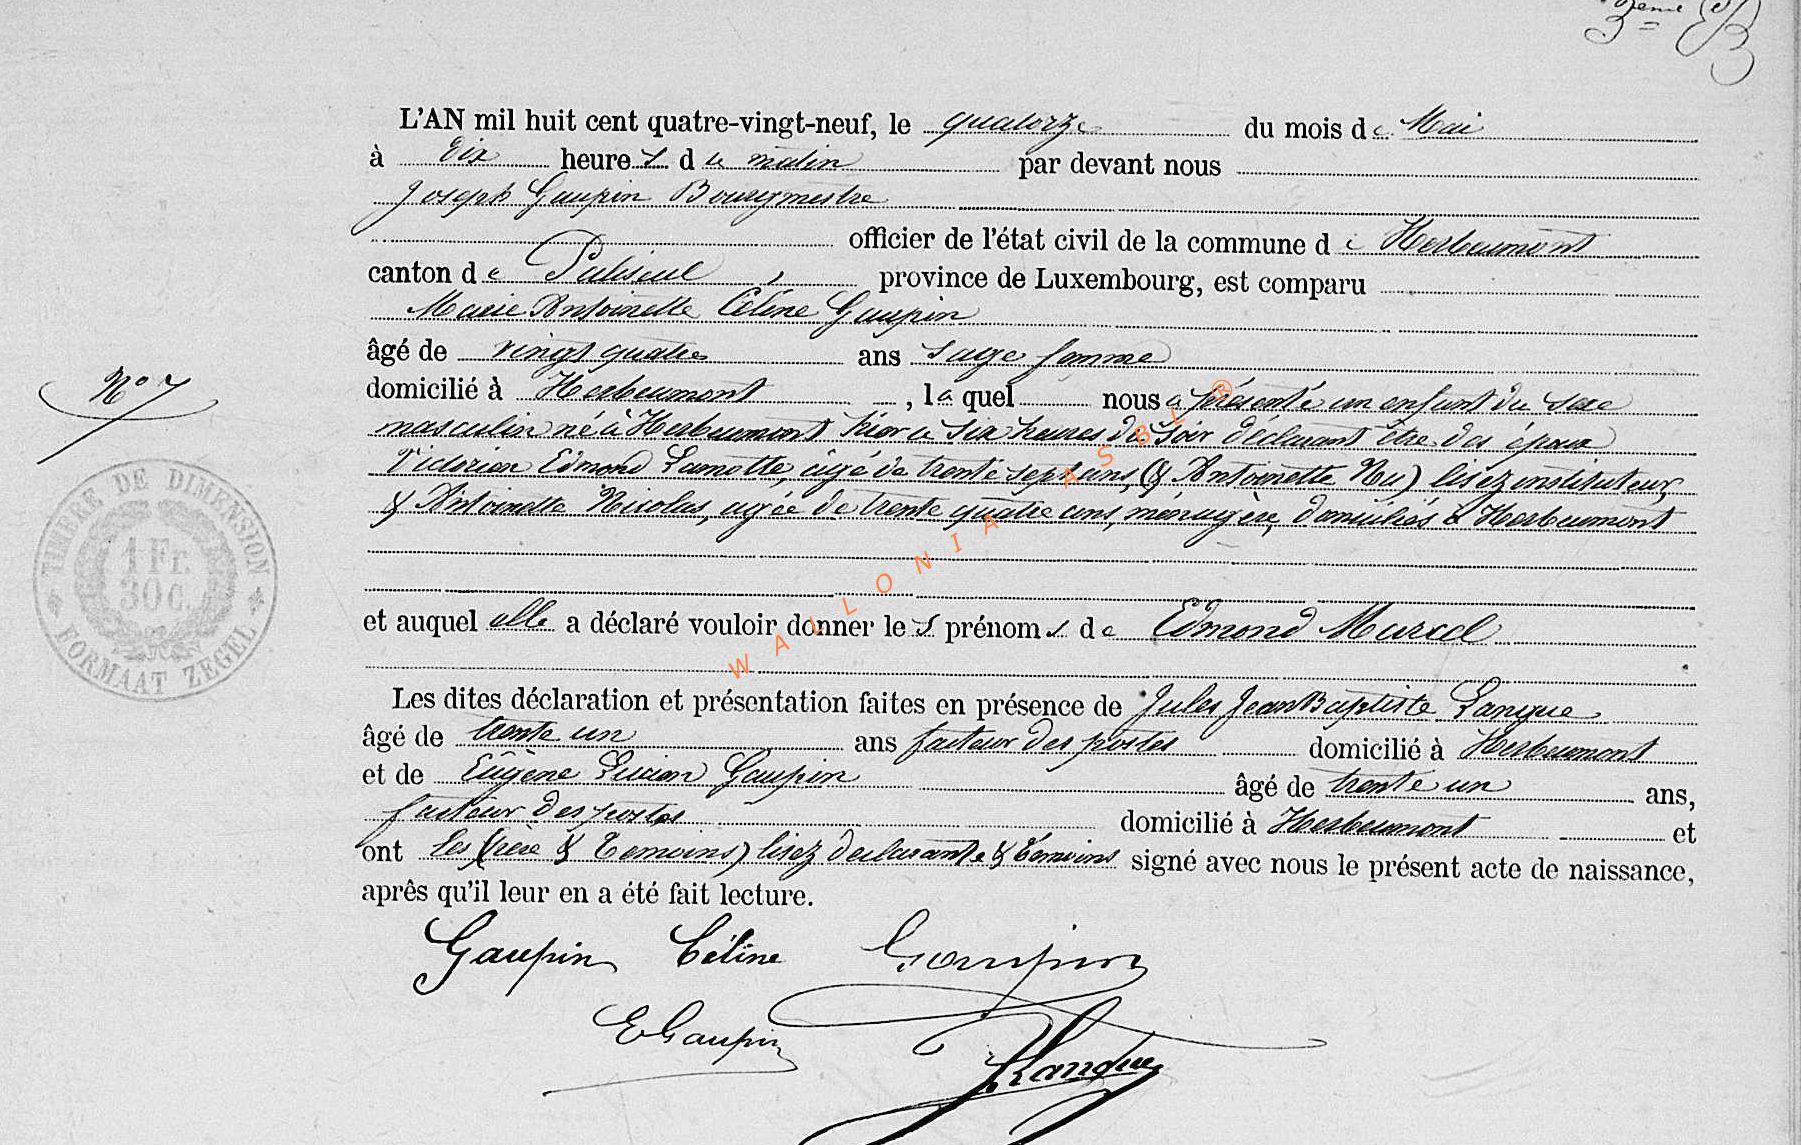 3eme
3=
L'AN mil huit cent quatre-vingt-neuf, le quatorze du mois de Mai
à dix heures du matin par devant nous
Joseph Gaupin Bourgmestre
officier de l'état civil de la commune de Herbeumont
canton de Paliseul, province de Luxembourg, est comparu
Marie Antoinette Céline Gaupin
âgé de vingt quatre ans sage femme
domicilié à Herbeumont, laquel nous a présenté un enfant du sexe
masculin né à Herbeumont hier à six heures du soir déclarant être des époux
Victorien Edmond Lamotte, âgé de trente sept ans, (& Antoinette Ni) lisez instituteur,
& Antoinette Nicolas, agée de trente quatre ans, ménagère, domiciliés à Herbeumont
et auquel elle a déclaré vouloir donner les prénoms de Edmond Marcel
Les dites déclaration et présentation faites en présence de Jules Jean Baptiste Langue
âgé de trente un ans facteur des postes domicilié à Herbeumont
et de Eugène Lucien Gaupin âgé de trente un ans,
facteur des postes domicilié à Herbeumont et
ont les (père & témoins) lisez déclarante & témoins signé avec nous le présent acte de naissance,
après qu'il leur en a été fait lecture.
Gaupin Céline Gaupin
EGaupin
JLangue
N° 7
TIMBRE DE DIMENSION
1 Fr.
30 C.
FORMAAT ZEGEL
WALLONIA ASBL ®